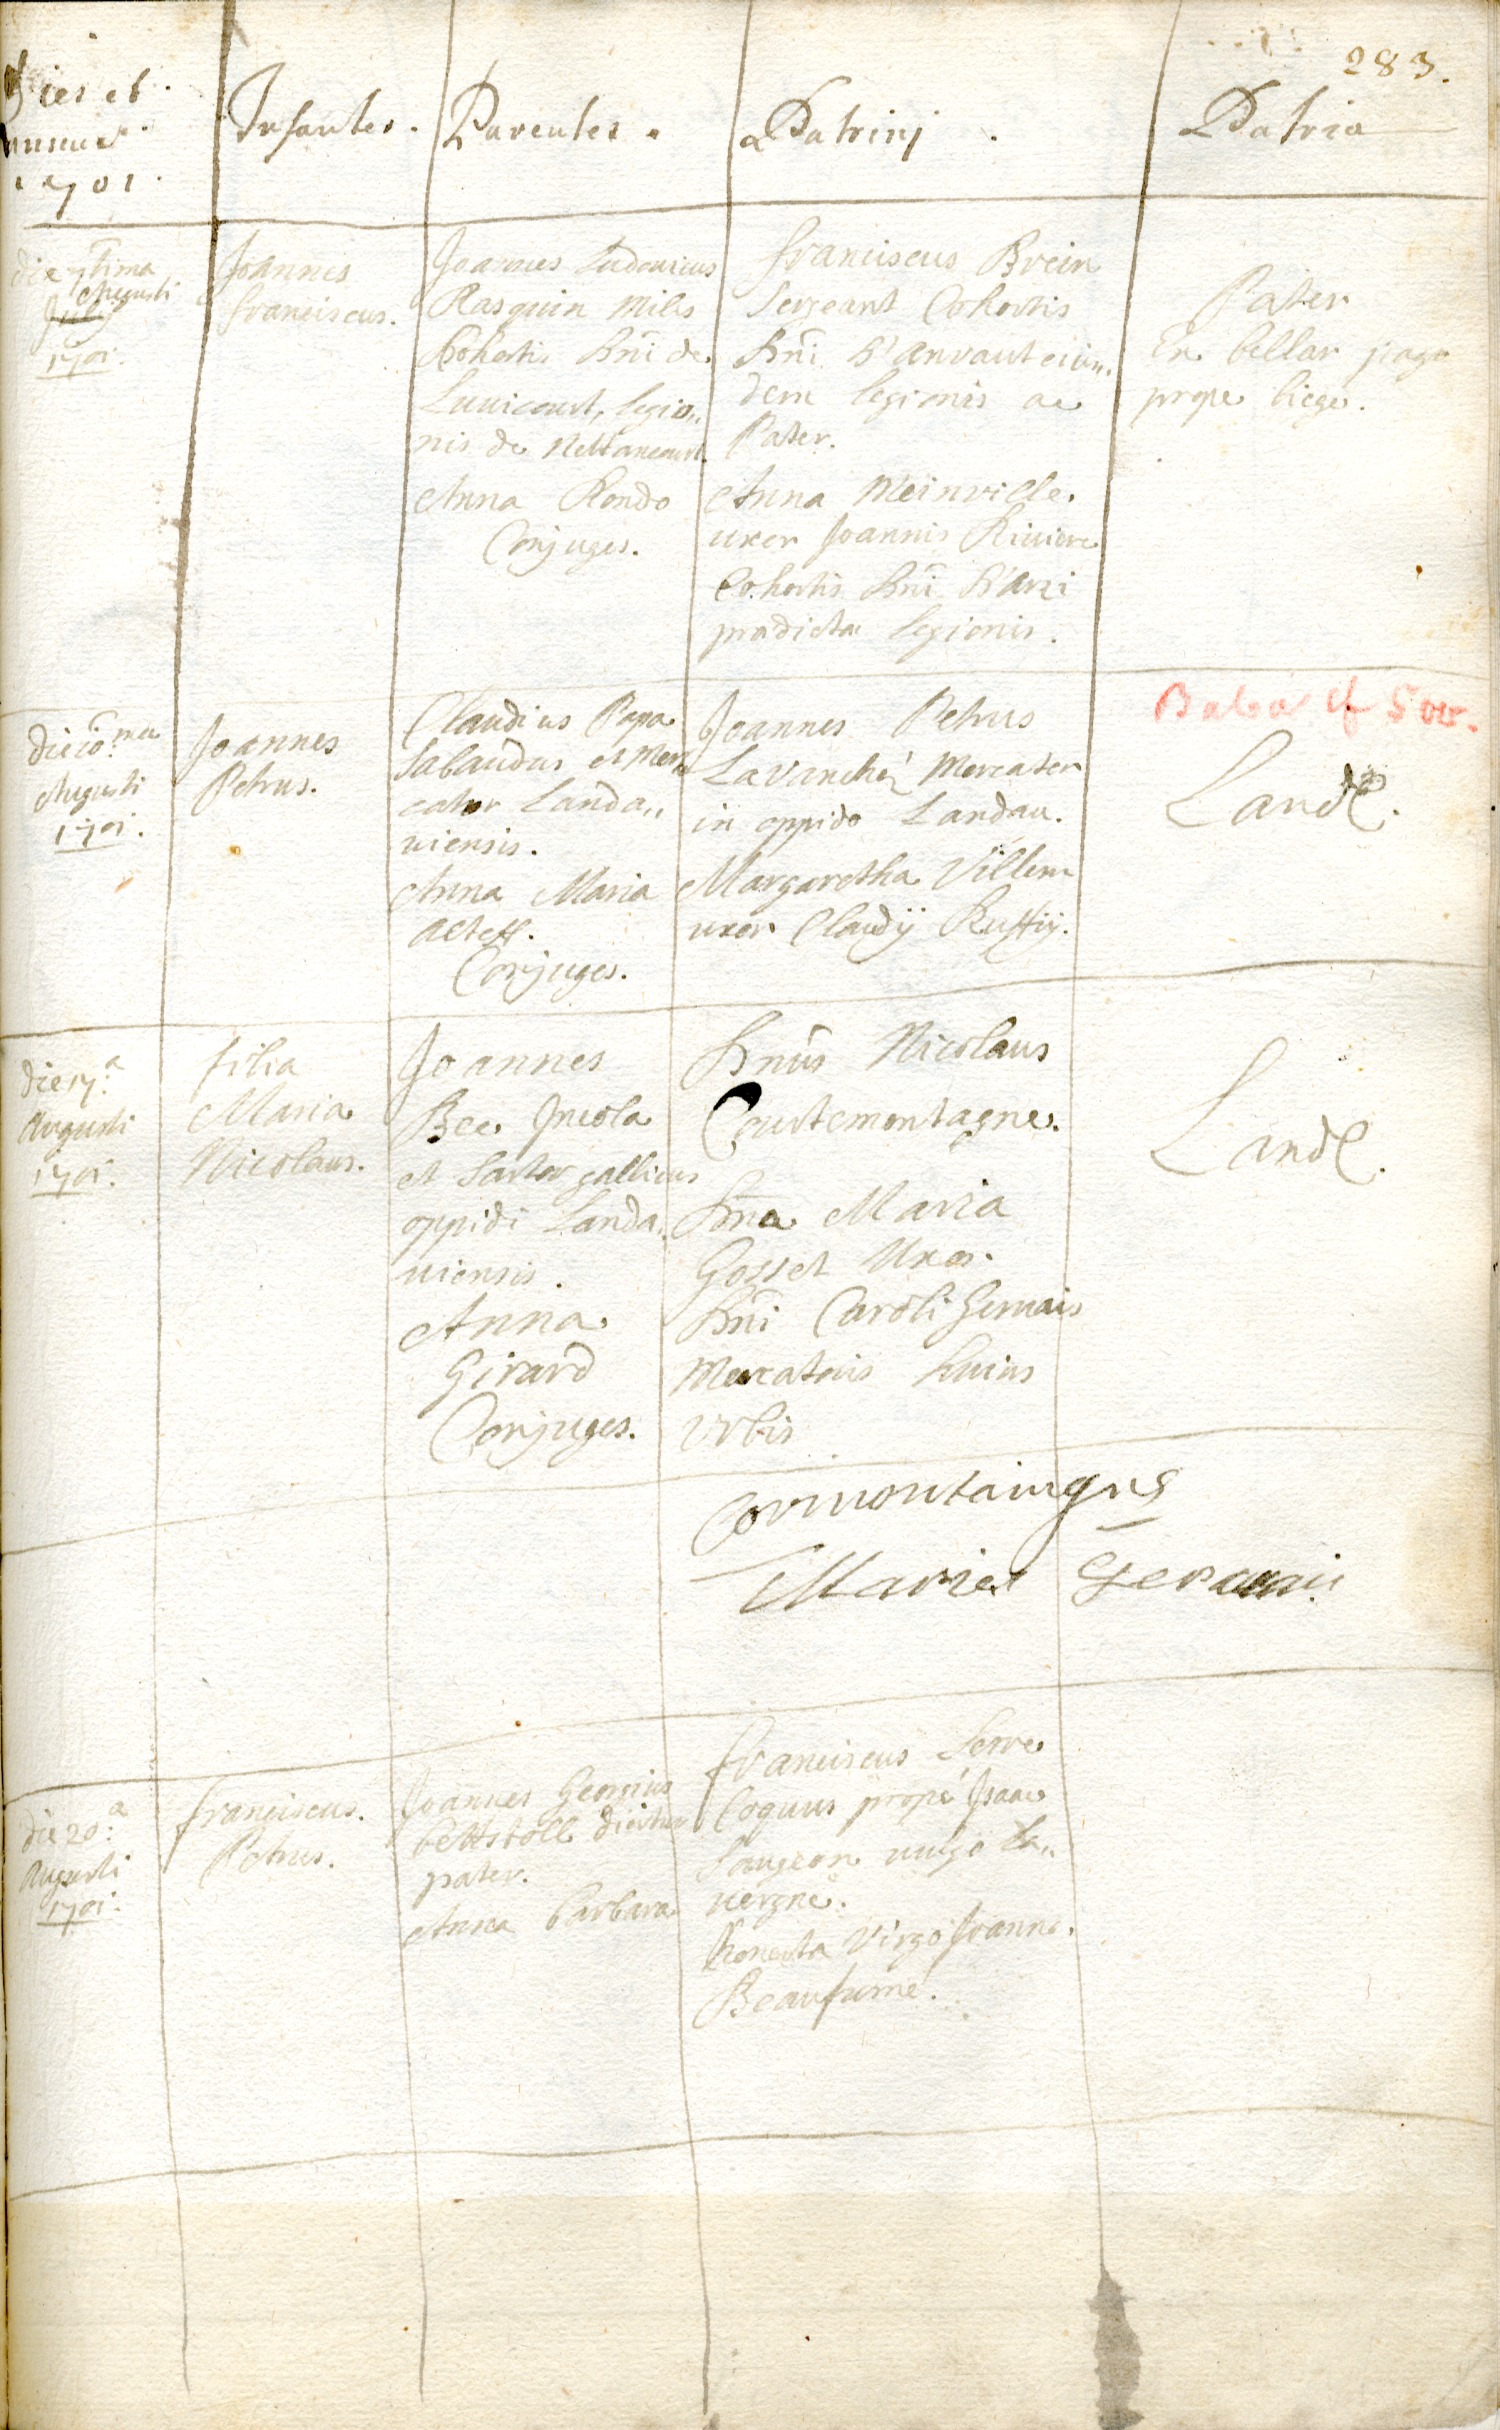 283.
Dies et
annus
1701.
Infantes.
Parentes.
Patrinj.
Patria
die 7tima
Augusti
July
1701.
Joannes
franciscus.
Joannes Ludovicus
Rasquin Miles
Cohortis Dni de
Luuicourt, legio„
nis de Nettancourt.
Anna Rondo
Conjuges.
franciscus Brein
Sergeant Cohortis
Dni D'Anvaut eius„
dem legionis ac
Pater.
Anna Meinville.
uxor Joannis Riviere
Cohortis Dni D'Arzi
prædictæ legionis.
Pater
Ex bellar pago
prope liege.
die 10.ma
Augusti
1701.
Joannes
Petrus.
Claudius Papa
Sabaudus et Mer„
cator Landa„
viensis.
Anna Maria
Conjuges.
Joannes Petrus
Lavanché Mercator
in oppido Landau.
Margaretha Villem
uxor Claudij Ruffij.
Land.
die 17.a
Augusti
1701.
filia
Maria
Nicolaus.
Joannes
Bee Incola
et Sartor gallicus
oppidi Landa„
viensis.
Anna
Girard
Conjuges.
Dnus Nicolaus
Courtemontagne.
Dna Maria
Gosset Uxor
Dni Caroli Gervais
Mercatoris huius
Urbis
Land.
Cormontaingne
Marie Gervais
die 20.a
Augusti
1701.
franciscus.
Petrus.
Joannes Georgius
bettstoll dicitur
pater.
Anna barbara
franciscus Serre
Coquus propé Isaac
Saugeon vulgo La„
vergne.
honesta Virgo Joanna.
Beaufumé.